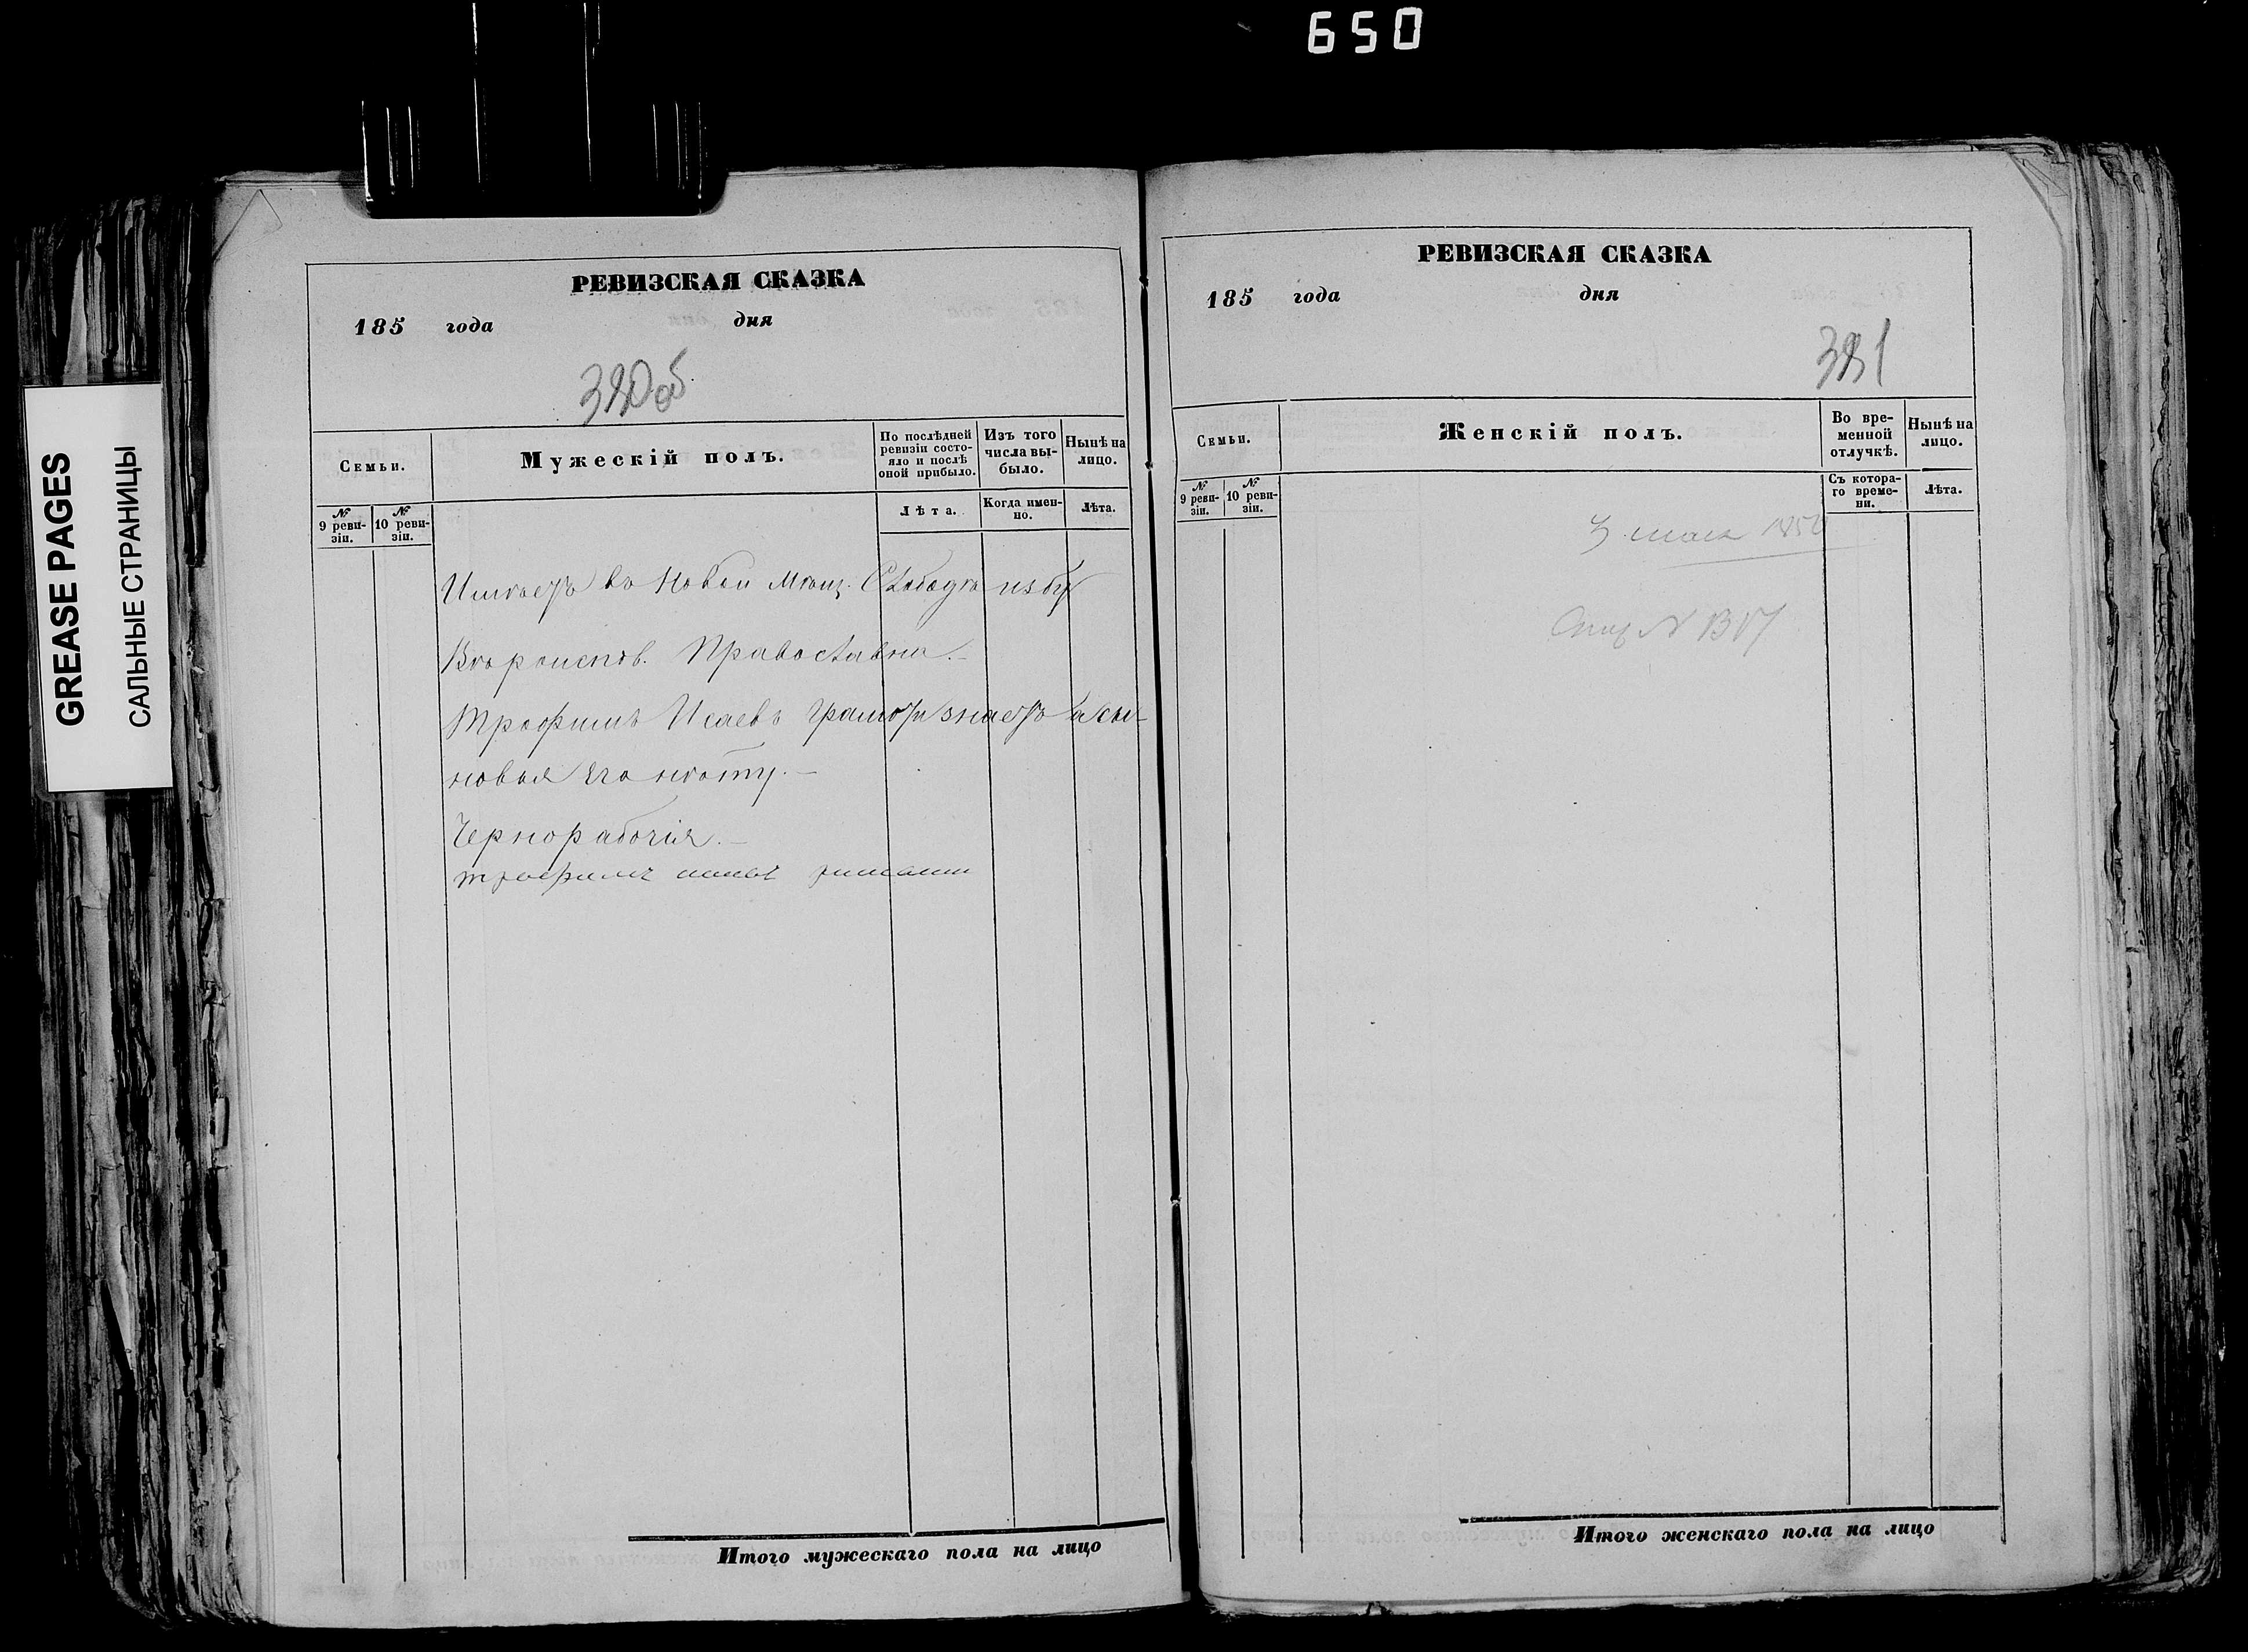 650
GREASE PAGES
САЛЬНЫЕ СТРАНИЦЫ
РЕВИЗСКАЯ СКАЗКА
185 года дня
Семьи.
Мужескій полъ.
По послѣдней ревизіи состояло и послѣ оной прибыло.
Изъ того числа выбыло.
Нынѣ на лицо.
№ 9 ревизіи.
№ 10 ревизіи.
Лѣта.
Когда именно.
Лѣта.
Имѣетъ въ Новой Мѣщ. Слободкѣ избу
Вѣроисповѣ. Православн.
Трофимъ Исаевъ грамоти знаетъ а сы-
новья его нѣтъ.
Чернорабочія.
трофимъ
Итого мужескаго пола на лицо
РЕВИЗСКАЯ СКАЗКА
185 года дня
381
Семьи.
Женскій полъ.
Во временной отлучкѣ.
Нынѣ на лицо.
№ 9 ревизіи.
№ 10 ревизіи.
Съ котораго времени.
Лѣта.
3 мая 1850
Итого женскаго пола на лицо